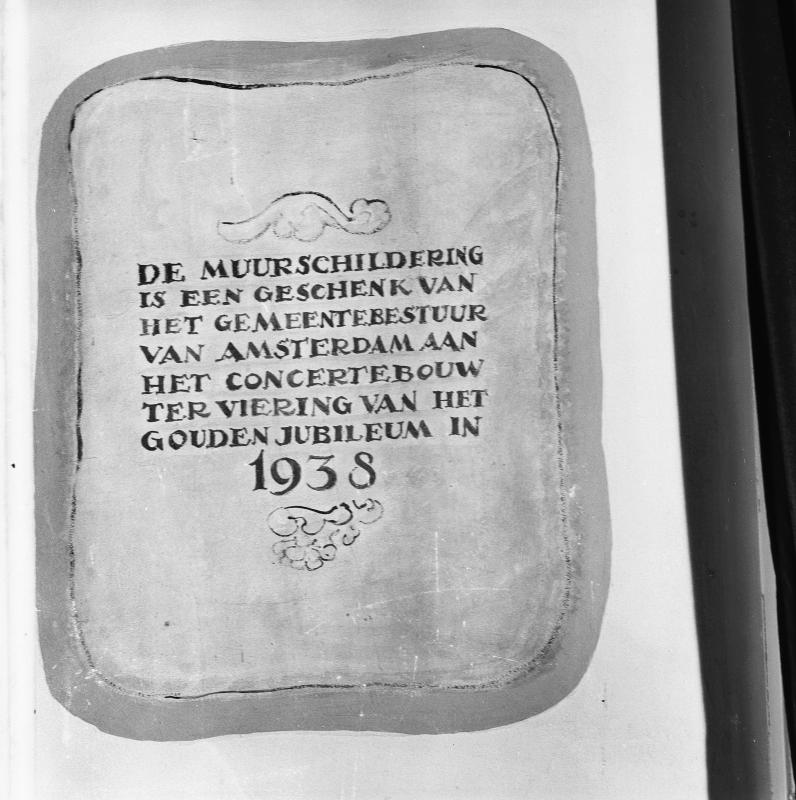 DE MUURSCHILDERING
IS EEN GESCHENK VAN
HET GEMEENTEBESTUUR
VAN AMSTERDAM AAN
HET CONCERTEBOUW
TER VIERING VAN HET
GOUDEN JUBILEUM IN
1938